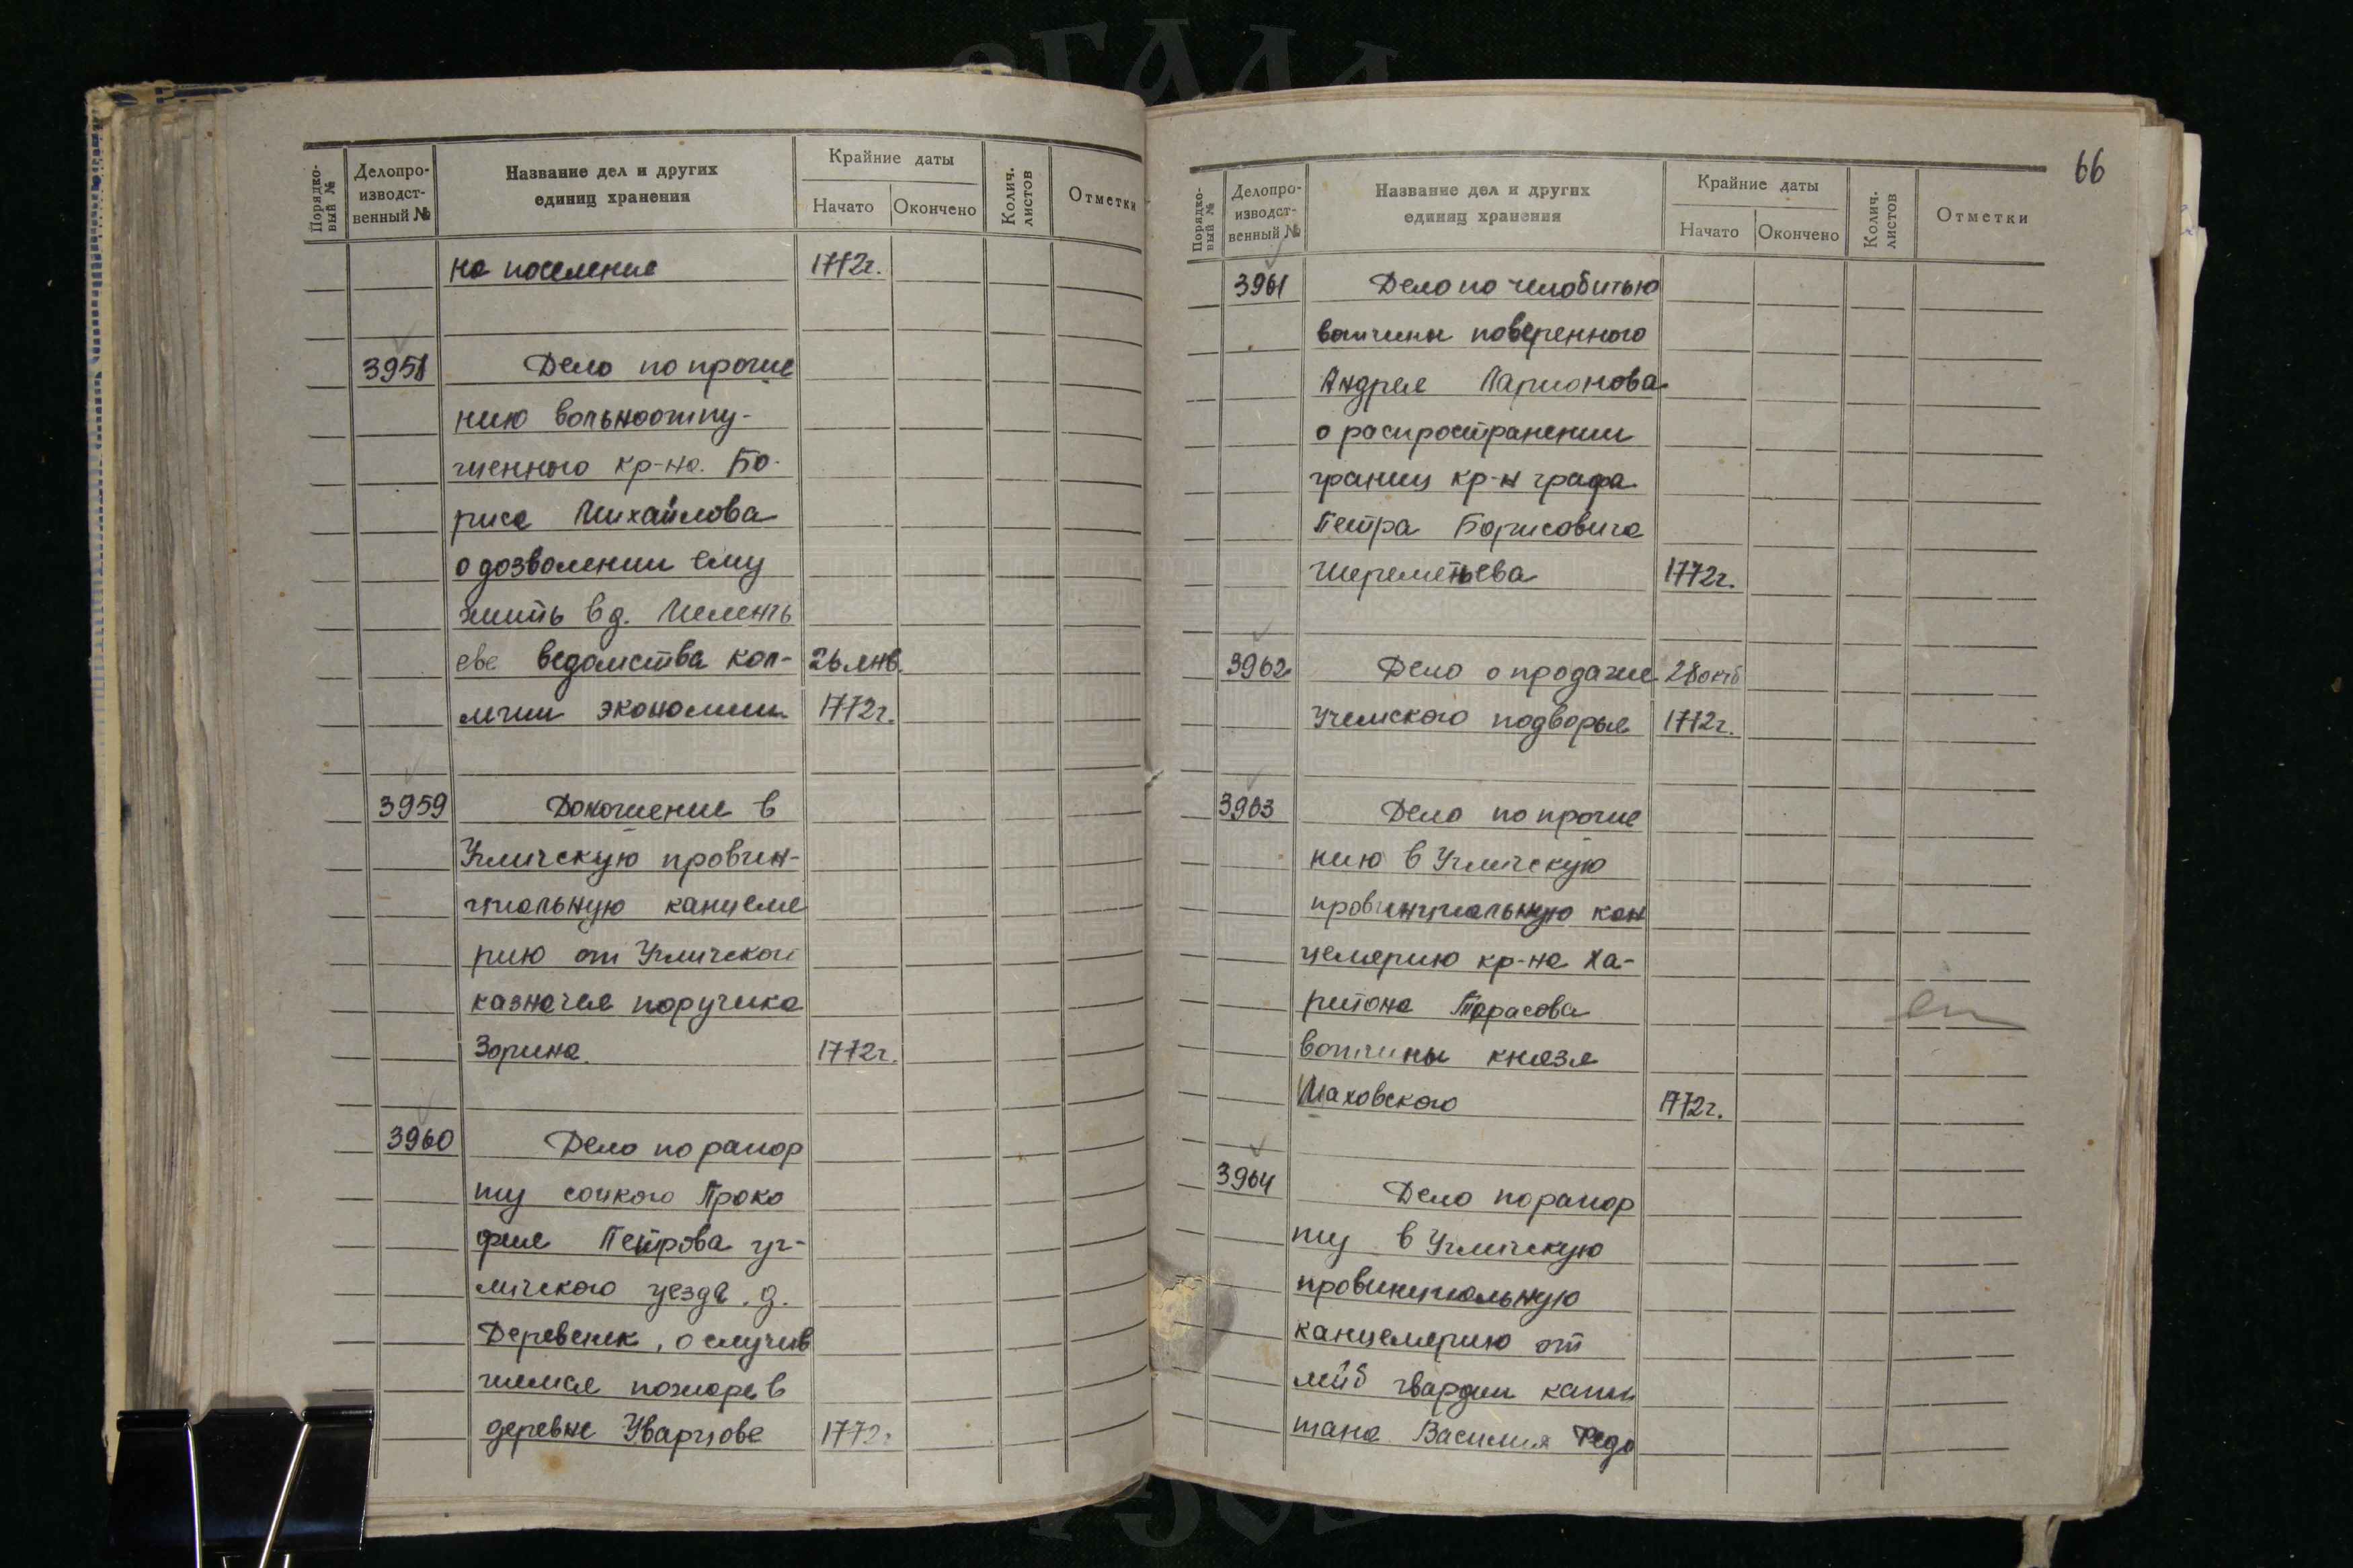 Порядко-
вый №
Делопро-
изводст-
венный №
Название дел и других
единиц хранения
Крайние даты
Начато
Окончено
Колич.
листов
Отметки
на поселение 1772г.
3958 Дело по проше
нию вольноотпу-
щенного кр-на Бо-
риса Михайлова
о дозволении ему
жить в д.
еве ведомства кол-
26 янв.
легии экономии 1772г.
3959 Доношение в
Угличскую провин-
циальную канцеля
рию от Угличского
казначея поручика
Зорина. 1772г.
3960 Дело по рапор
ту сотского Проко
фия Петрова уг-
личского уезда д.
Деревенек, о случив
шемся пожаре в
деревне Уварцове 1772г
66
Порядко-
вый №
Делопро-
изводст-
венный №
Название дел и других
единиц хранения
Крайние даты
Начато
Окончено
Колич.
листов
Отметки
3961 Дело по челобитью
вотчины поверенного
Андрея Ларионова
о распространении
границ кр-н графа
Петра Борисовича
Шереметьева 1772г.
3962 Дело о продаже 28 окт
Учемского подворья 1772г.
3963 Дело по проше
нию в Угличскую
провинциальную кан
целярию кр-на Ха-
ритона Тарасова
вотчины князя
Шаховского 1772г.
3964 Дело по рапор
ту в Угличскую
провинциальную
канцелярию от
лейб гвардии капи
тана Василия Федо